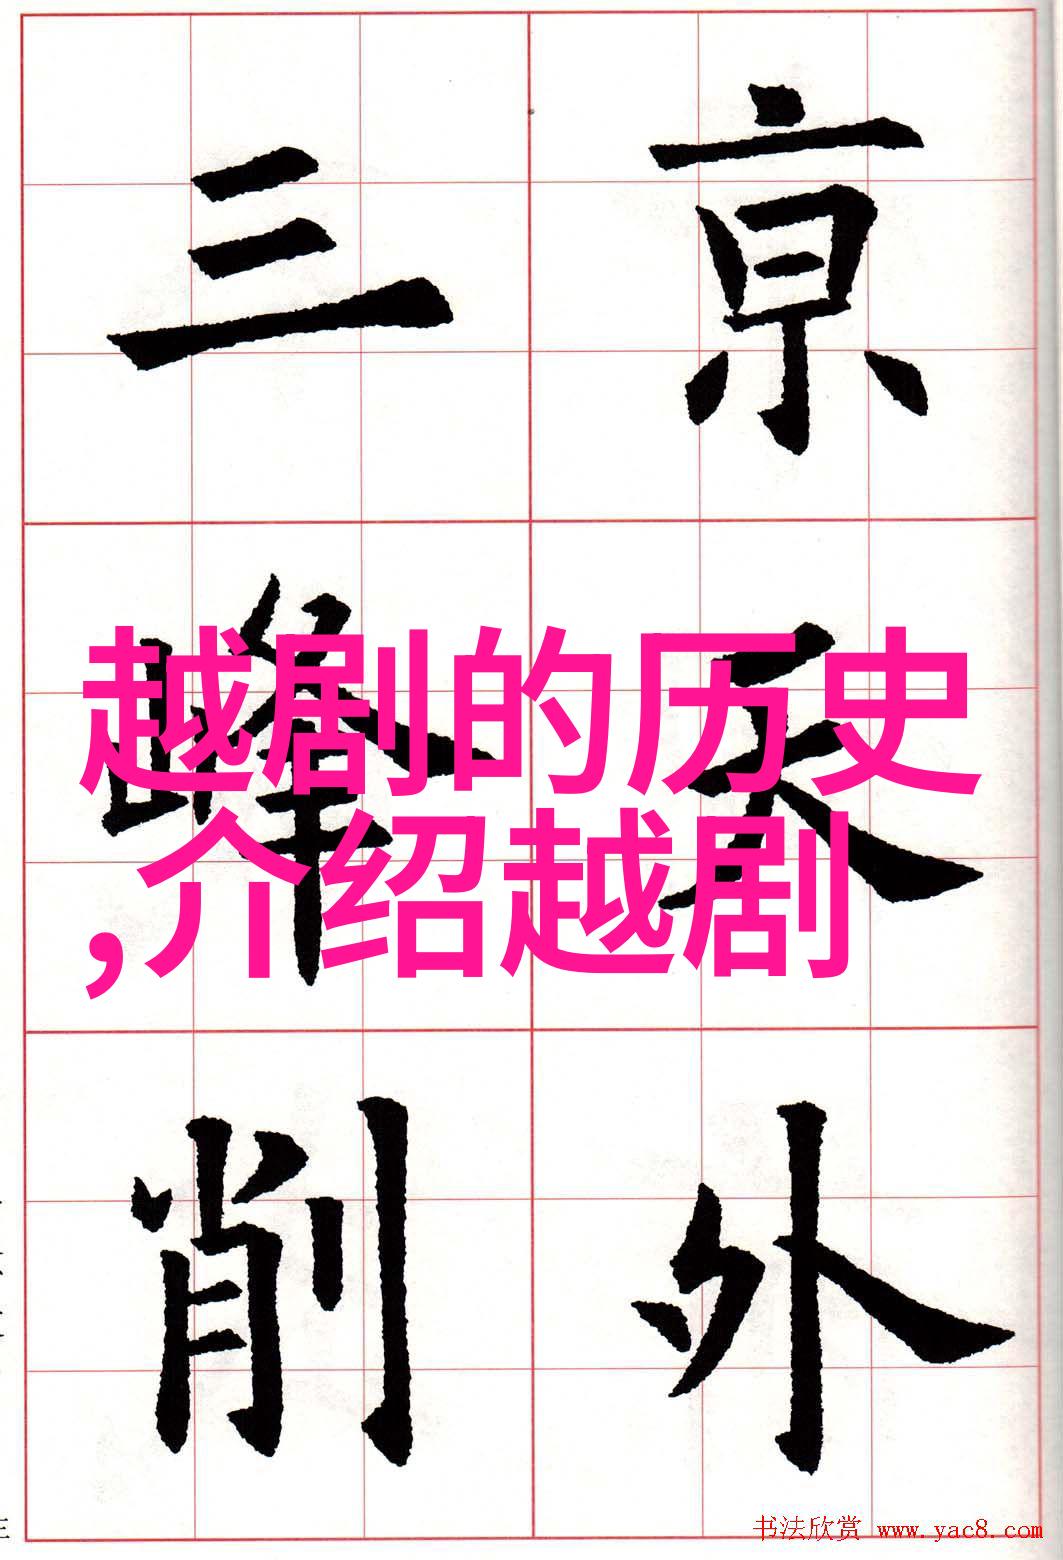 亰天外
三峰削
越剧的历史
,介绍越剧
书法欣赏 www.yac8.com